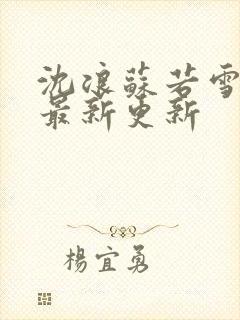 沈浪蘇若雪
最新更新
楊宜勇